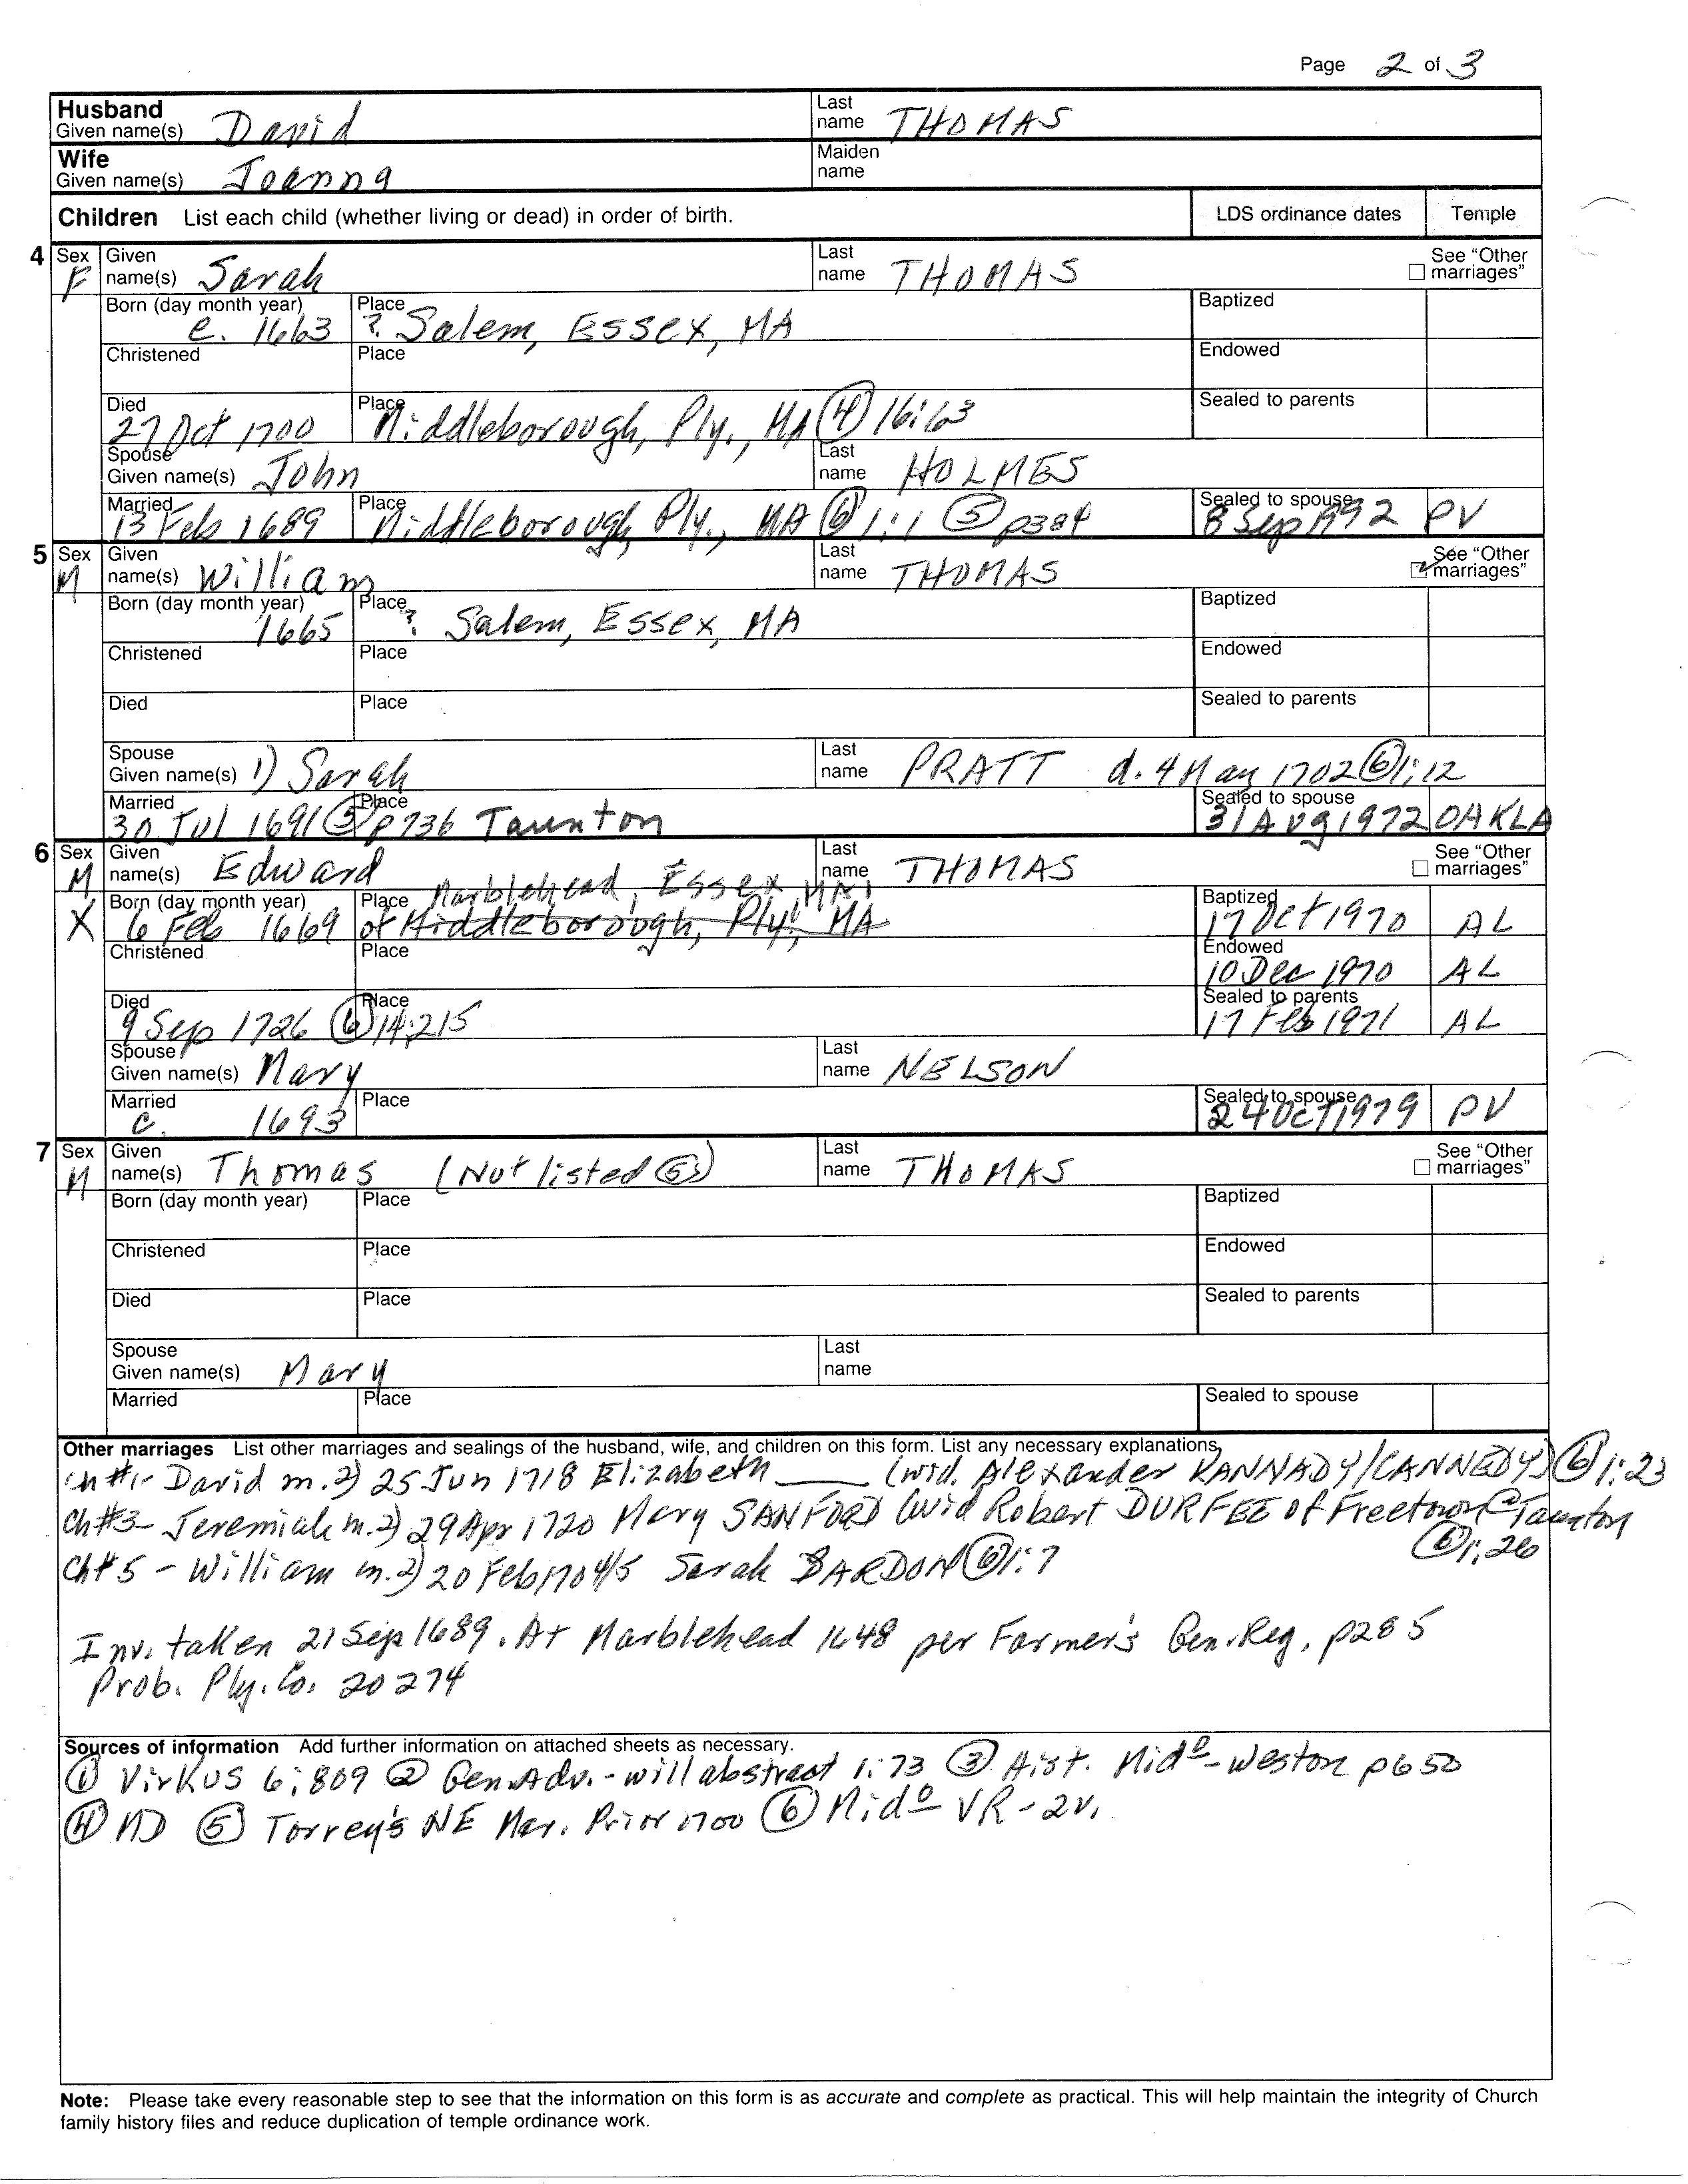 Page 2 of 3
Husband Given name(s) David Last name THOMAS
Wife Given name(s) Joanna Maiden name
Children List each child (whether living or dead) in order of birth. LDS ordinance dates Temple
4 Sex F Given name(s) Sarah Last name THOMAS See "Other marriages"
Born (day month year) c. 1663 Place ? Salem, Essex, MA Baptized
Christened Place Endowed
Died 27 Oct 1700 Place Middleborough, Ply., MA (4) 16:63 Sealed to parents
Spouse Given name(s) John Last name HOLMES
Married 13 Feb 1689 Place Middleborough, Ply., MA (6) 1:1 (5) p384 Sealed to spouse 8 Sep 1992 PV
5 Sex M Given name(s) William Last name THOMAS See "Other marriages"
Born (day month year) 1665 Place ? Salem, Essex, MA Baptized
Christened Place Endowed
Died Place Sealed to parents
Spouse Given name(s) 1) Sarah Last name PRATT d. 4 May 1702 (6) 1:12
Married 30 Jul 1691 (5) p736 Place Taunton Sealed to spouse 31 Aug 1972 OAKLA
6 Sex M Given name(s) Edward Last name THOMAS See "Other marriages"
X Born (day month year) 6 Feb 1669 Place Marblehead, Essex, MA of Middleborough, Ply, MA Baptized 17 Oct 1970 AL
Christened Place Endowed 10 Dec 1970 AL
Died 9 Sep 1726 (6) 14:215 Place Sealed to parents 17 Feb 1971 AL
Spouse Given name(s) Mary Last name NELSON
Married c. 1693 Place Sealed to spouse 24 Oct 1979 PV
7 Sex M Given name(s) Thomas (Not listed (5)) Last name THOMAS See "Other marriages"
Born (day month year) Place Baptized
Christened Place Endowed
Died Place Sealed to parents
Spouse Given name(s) Mary Last name
Married Place Sealed to spouse
Other marriages List other marriages and sealings of the husband, wife, and children on this form. List any necessary explanations.
Ch #1- David m. 2) 25 Jun 1718 Elizabeth ____ (wid. Alexander KANNADY/CANNEDY) (6) 1:23
Ch #3- Jeremiah m. 2) 29 Apr 1720 Mary SANFORD (wid Robert DURFEE of Freetown @ Taunton
(6) 1:26
Ch# 5 - William m. 2) 20 Feb 1704/5 Sarah BARDON (6) 1:7
Inv. taken 21 Sep 1689. At Marblehead 1648 per Farmer's Gen. Reg. p285
Prob. Ply. Co. 20274
Sources of information Add further information on attached sheets as necessary.
(1) Virkus 6:809 (2) Gen. Adv. - will abstract 1:73 (3) Hist. Midº - Weston p650
(4) MD (5) Torrey's NE Mar. Prior 1700 (6) Midº VR - 2v.
Note: Please take every reasonable step to see that the information on this form is as accurate and complete as practical. This will help maintain the integrity of Church
family history files and reduce duplication of temple ordinance work.